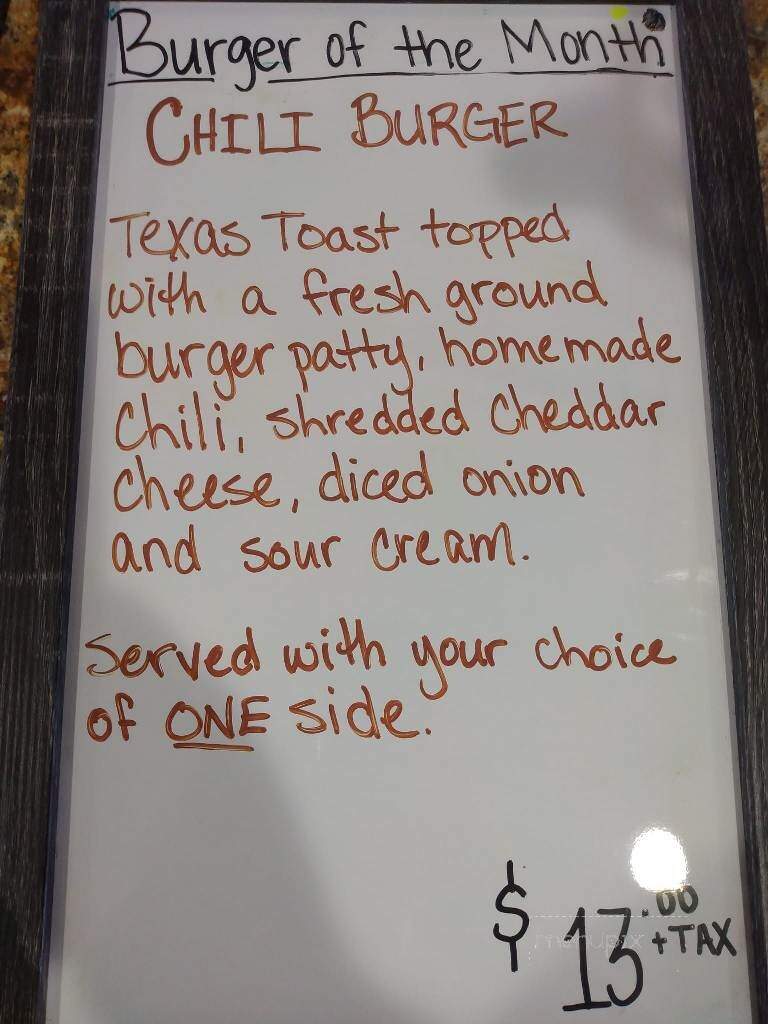 Burger of the Month
CHILI BURGER
Texas Toast topped
with a fresh ground
burger patty, homemade
Chili, shredded Cheddar
Cheese, diced onion
and sour cream.
Served with your choice
of ONE side.
$13.00
+TAX
menupix